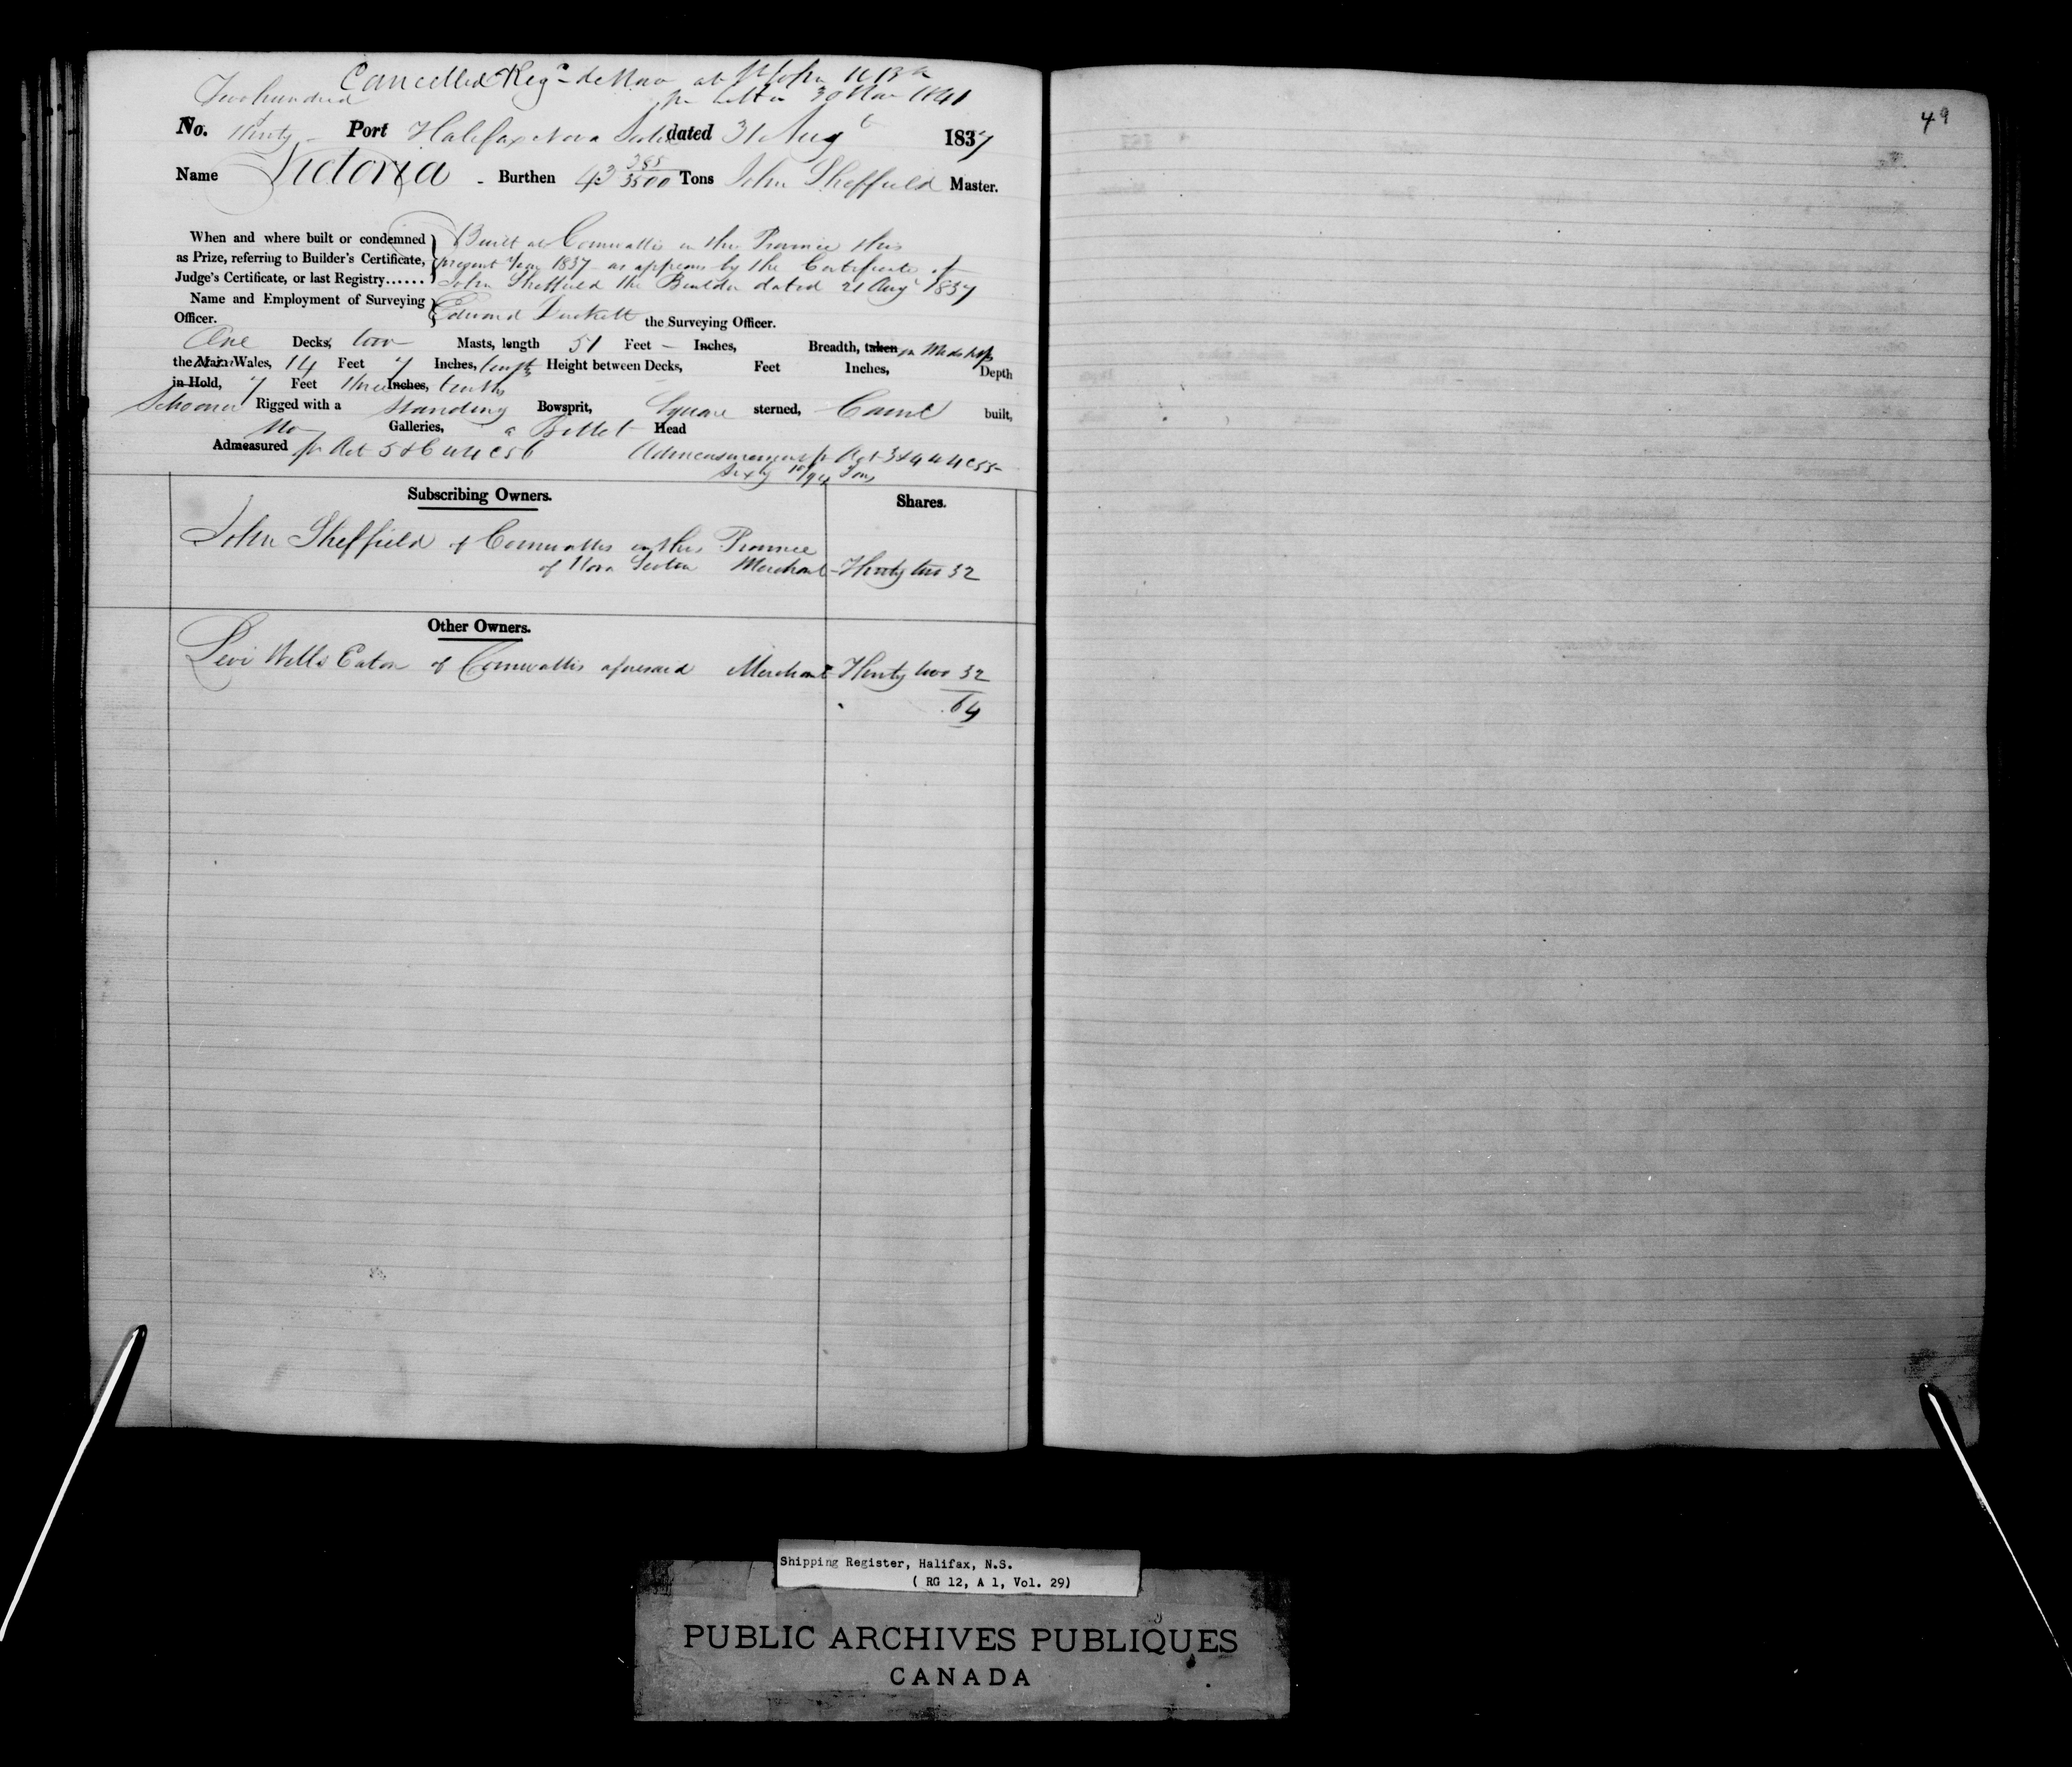 Cancelled Reg^d de Novo at St John N B
Two hundred pr Letter 30 Nov 1841
No. thirty Port Halifax Nova Scotia dated 31 Aug^t 1837
Name Victoria - Burthen 43 Tons John Sheffield Master.
When and where built or condemned Built at Cornwallis in the Province this
as Prize, referring to Builder's Certificate, present Year 1837 as appears by the Certificate of
Judge's Certificate, or last Registry...... John Sheffield the Builder dated 21 Aug^t 1837
Name and Employment of Surveying
Officer. Edward the Surveying Officer.
One Decks, two Masts, length 51 Feet — Inches, Breadth, taken in Midships
the Main Wales, 14 Feet 7 Inches, tenths Height between Decks, Feet Inches, Depth
in Hold, 7 Feet three Inches, tenths
Schooner Rigged with a Standing Bowsprit, Square sterned, Carvel built,
No Galleries, a Billet Head
Admeasured pr Act 5 & 6 W 4 C 56 Admeasurement pr Act 3 & 4 W 4 C 55
Sixty Tons
Subscribing Owners. Shares.
John Sheffield of Cornwallis in this Province
of Nova Scotia Merchant - Thirty two 32
Other Owners.
Levi Wells Eaton of Cornwallis aforesaid Merchant Thirty two 32
64
49
Shipping Register, Halifax, N.S.
( RG 12, A 1, Vol. 29)
PUBLIC ARCHIVES PUBLIQUES
CANADA